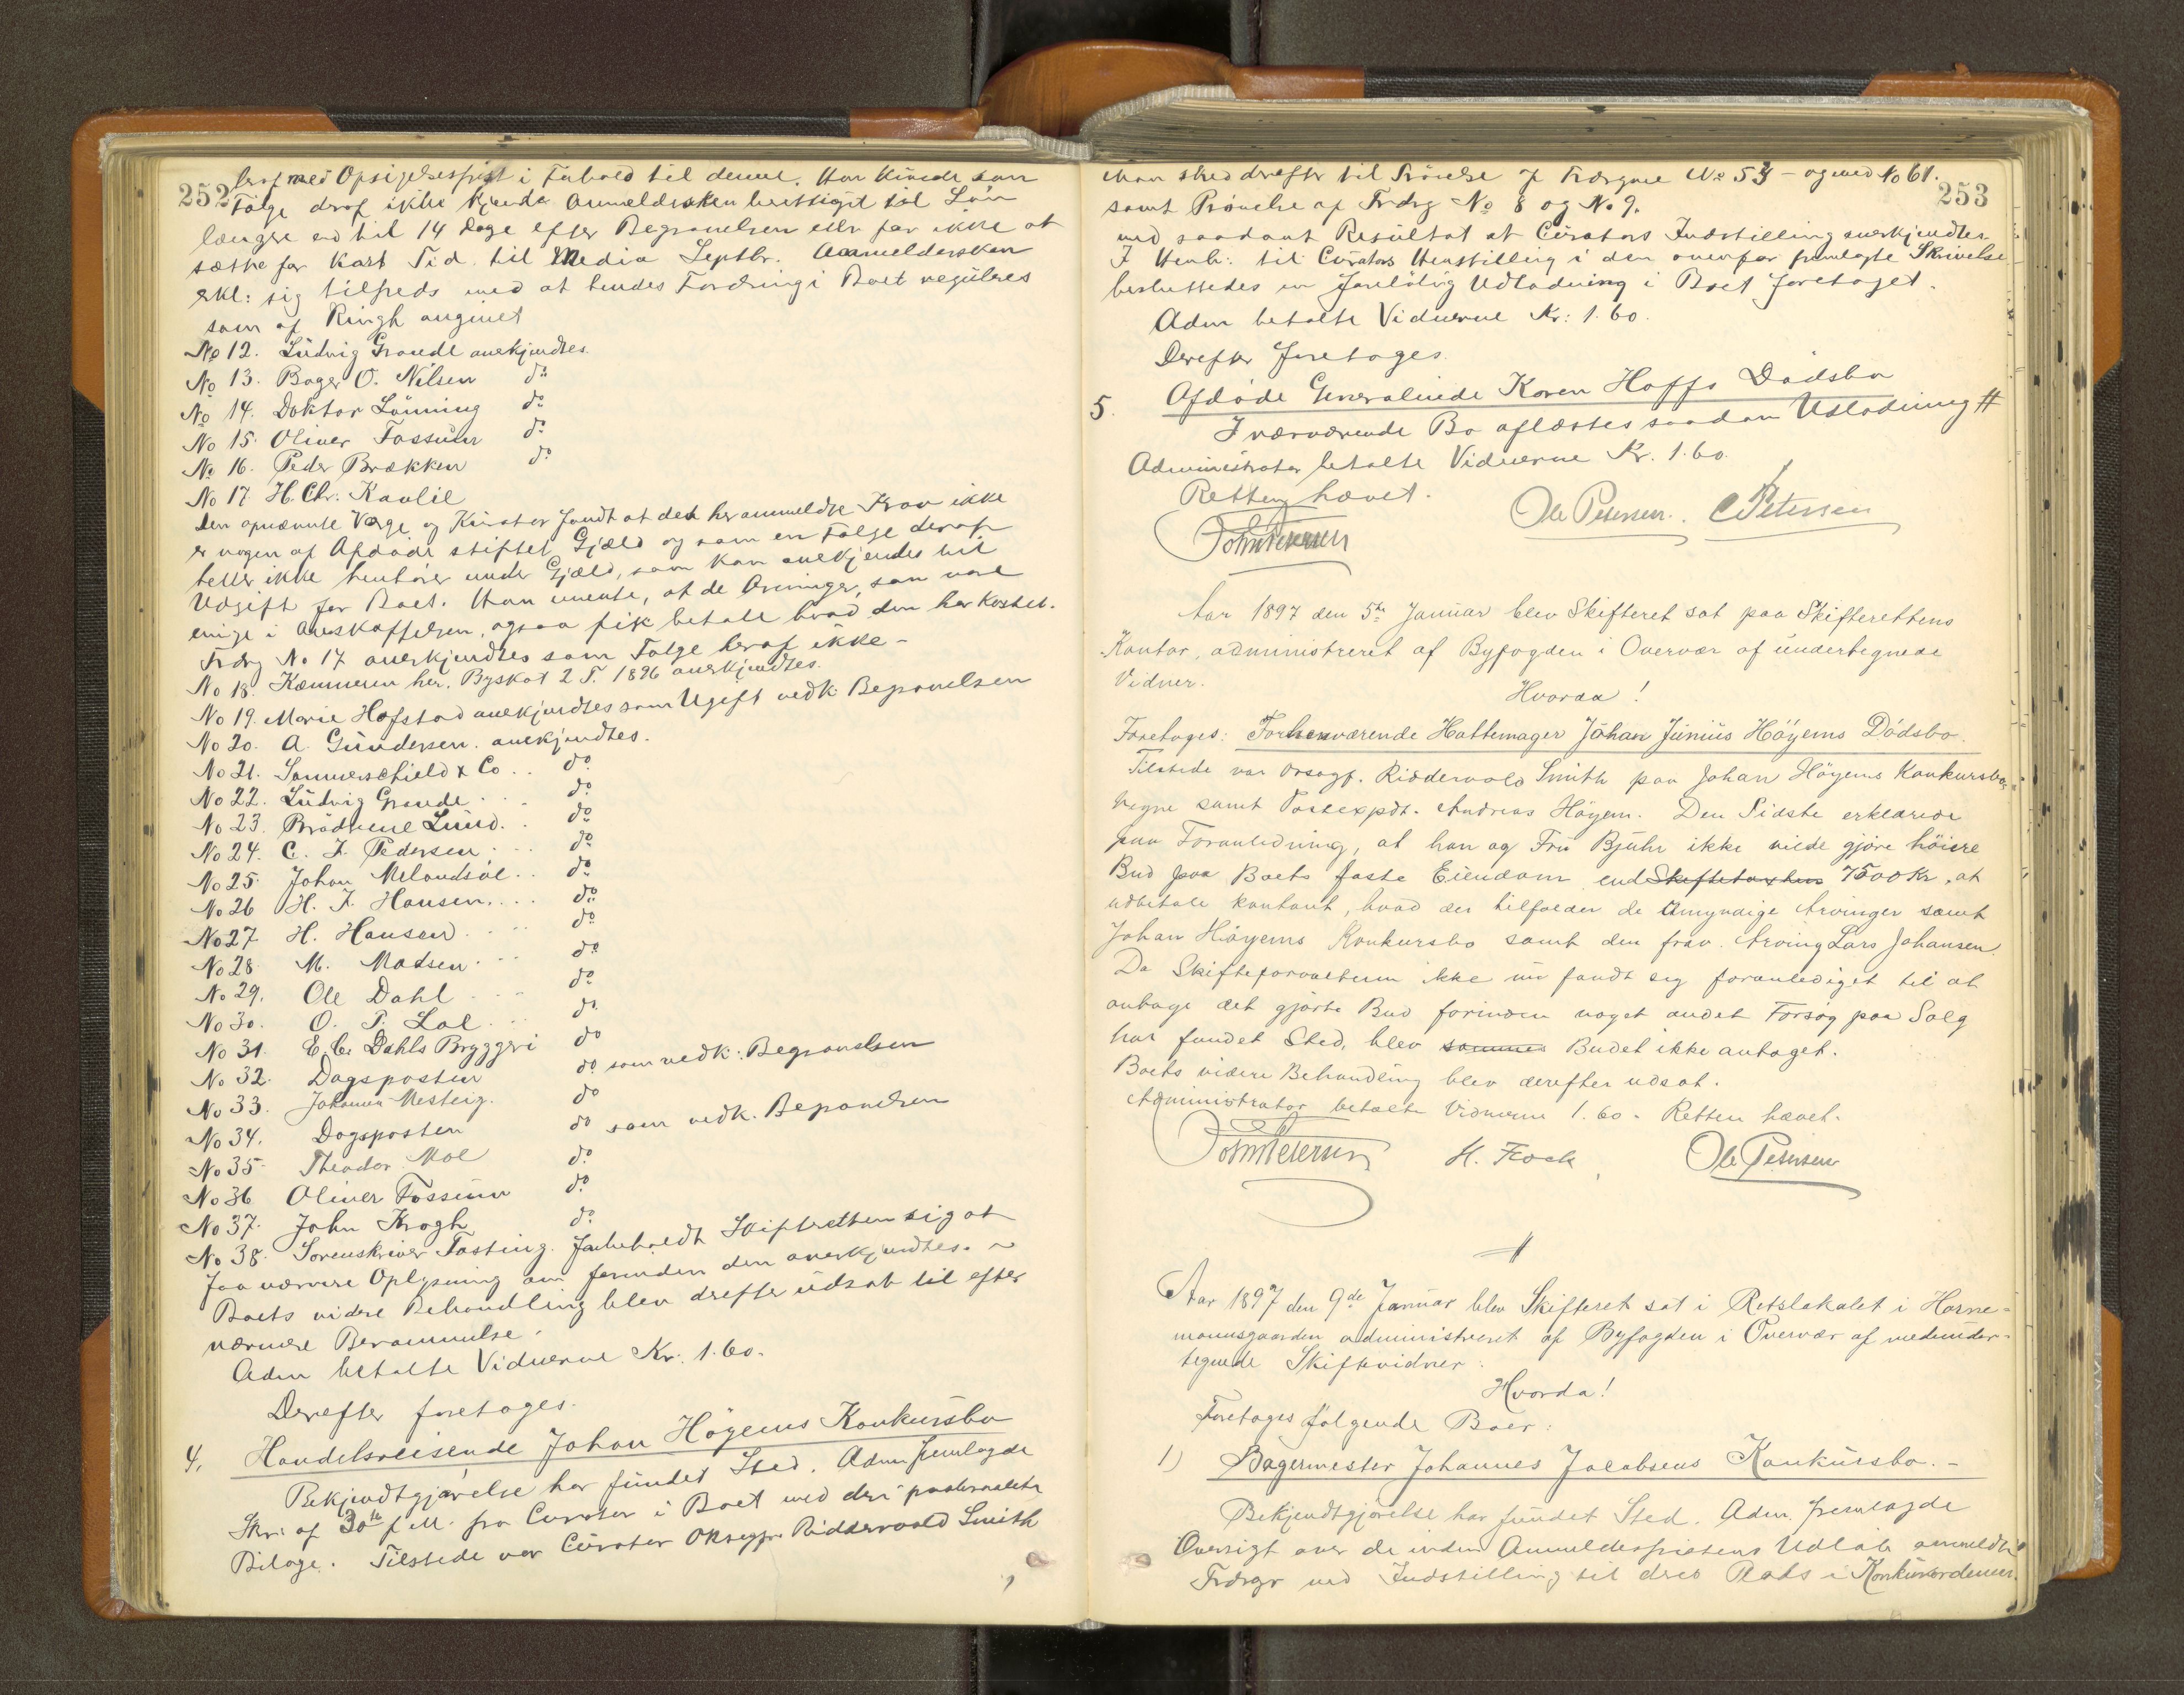 252
heraf med Opsigelsesfrist i Forhold til denne. Han kunde som
Følge deraf ikke kjende Anmeldersken berettiget til Løn
længere end til 14 Dage efter Begravelsen eller for ikke at
sætte for kort Tid til Media Septbr. Anmeldersken
erkl: sig tilfreds med at hendes Fordring i Boet reguleres
som af Ringh angivet
No 12. Ludvig Grande anerkjendtes.
No 13. Bager O. Nilsen do
No 14. Doktor Lønning do
No 15. Oliver Fossum do
No 16. Peder Brækken do
No 17. H. Chr. Kavlie
Den opnævnte Verge og Kurator fandt at det her anmeldte Krav ikke
er nogen af Afdøde stiftet Gjæld og som en Følge deraf
heller ikke henhører under Gjæld, som kan anerkjendes til
Udgift for Boet. Han mente, at de Arvinger, som var
enige i Anskaffelsen, ogsaa fik betale hvad den har kostet.
Frdrg No 17 anerkjendtes som Følge heraf ikke –
No 18. Kæmneren her. Byskat 2 T. 1896 anerkjendtes.
No 19. Marie Hofstad anerkjendtes som Ugift vedk: Begravelsen
No 20. A. Gundersen. anerkjendtes.
No 21. Sommerschield & Co .. do
No 22. Ludvig Grande ... do
No 23. Brødrene Lund. .. do
No 24. C. F. Pedersen ... do
No 25. Johan Melandsøe .. do
No 26 H. F. Hansen .... do
No 27 H. Hansen .... do
No 28. M. Madsen ... do
No 29. Ole Dahl ... do
No 30. O. P. Lal ... do
No 31. E. C. Dahls Bryggeri do
No 32. Dagsposten do som vedk: Begravelsen
No 33. Johannes Mesteig. do
No 34. Dagsposten do som vedk. Begravelsen
No 35 Theodor Moe do
No 36 Oliver Fossum do
No 37. John Krogh do
No 38. Sorenskriver Fasting. Forbeholdt Skifteretten sig at
faa nærmere Oplysning om forinden den anerkjendtes. ~
Boets videre Behandling blev derefter udsat til efter
nærmere Berammelse.
Adm betalte Vidnerne Kr. 1.60.
Derefter foretoges.
4. Handelsreisende Johan Høyems Konkursbo
Bekjendtgjørelse har fundet Sted. Adm fremlagde
Skr: af 30te f. M. fra Curator i Boet med deri paaberaabte
Bilage. Tilstede var Curator Orsagfr. Riddervold Smith
253
Man skred derefter til Prövelse af Frdrgne No 53 – og med No 61.
samt Prövelse af Frdrg No 8 og No 9.
med saadant Resultat at Curators Indstilling anerkjendtes.
I Henh: til Curators Henstilling i den ovenfor fremlagte Skrivelse
besluttedes en foreløbig Udlodning i Boet foretaget.
Adm betalte Vidnerne Kr: 1.60.
Derefter foretages.
5. Afdøde Generalinde Karen Hoffs Dødsbo
I nærværende Bo aflæstes saadan Udlodning #
Administrator betalte Vidnerne Kr. 1.60.
Retten hævet.
Ole Petersen. C Petersen
John Petersen
Aar 1897 den 5te Januar blev Skifteret sat paa Skifterettens
Kontor, administreret af Byfogden i Overvær af undertegnede
Vidner.
Hvorda!
Foretages: Forhenværende Hattemager Johan Junius Höyems Dødsbo.
Tilstede var Orsagf. Riddervold Smith paa Johan Höyems Konkursbos
vegne samt Postexpdt. Andreas Höyem. Den Sidste erklærede
paa Foranledning, at han og Fru Bjuhr ikke vilde gjøre höiere
Bud paa Boets faste Eiendom end Skiftetaxten 7500 Kr, at
udbetale kontant, hvad der tilfalder de Umyndige Arvinger samt
Johan Höyems Konkursbo samt den frav. Arving Lars Johansen.
Da Skifteforvalteren ikke nu fandt sig foranlediget til at
antage det gjorte Bud forinden noget andet Forsøg paa Salg
har fundet Sted, blev sammes Budet ikke antaget.
Boets videre Behandling blev derefter udsat.
Administrator betalte Vidnerne 1.60. Retten hævet.
John Petersen H. Flock Ole Petersen
Aar 1897 den 9de Januar blev Skifteret sat i Retslokalet i Horne-
mannsgaarden administreret af Byfogden i Overvær af medunder-
tegnede Skiftevidner.
Hvorda!
Foretages følgende Boer:
1) Bagermester Johannes Jacobsens Konkursbo. –
Bekjendtgjørelse har fundet Sted. Adm. fremlagde
Oversigt over de inden Anmeldesfristens Udløb anmeldte
Frdrgr med Indstilling til deres Plads i Konkursordenen.